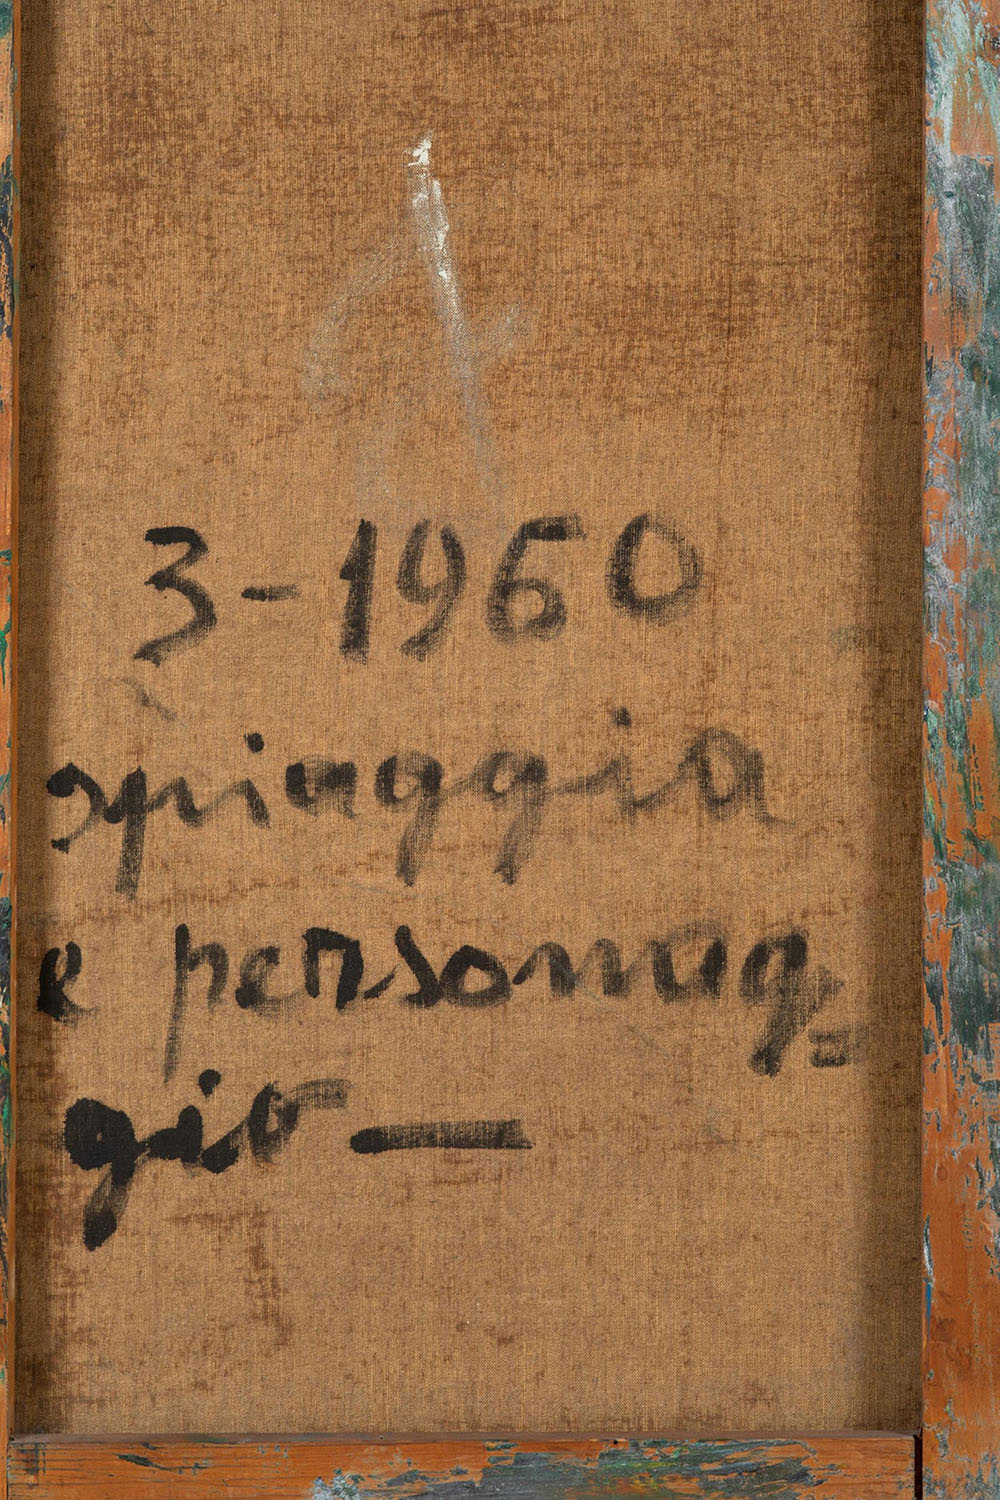 3-1960
spiaggia
e personag=
gio —